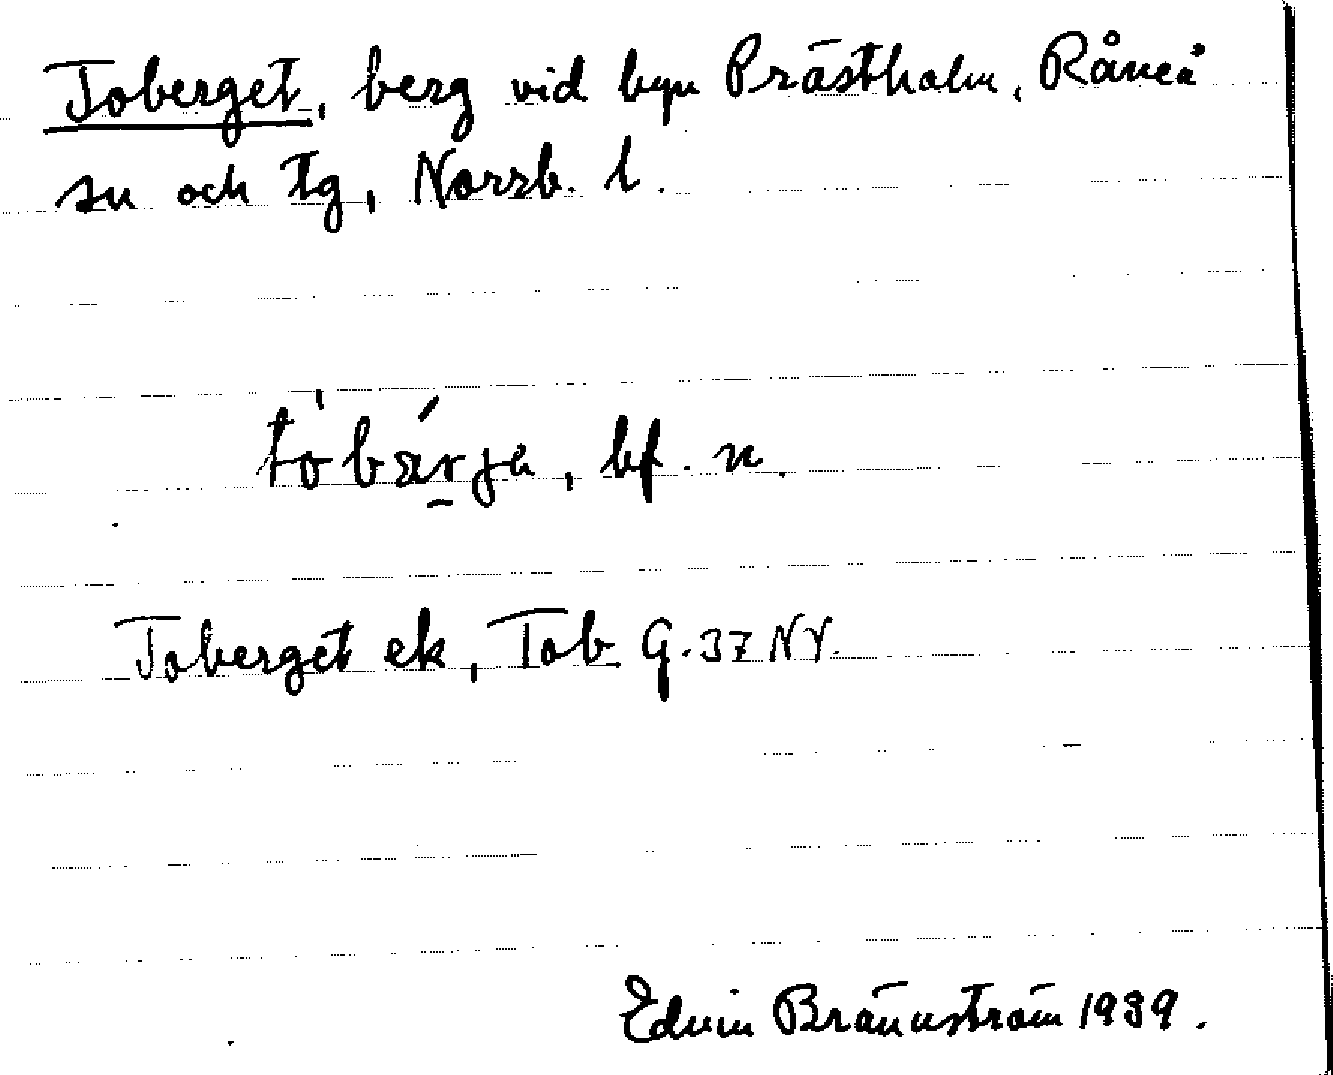 Toberget, berg vid byn Prästholm, Råneå
sn och tg, Norrb. l.
tòbä́r̲ja, bf. n.
Toberget ek, Tob G. 37 NV.
Edvin Brännström 1939.